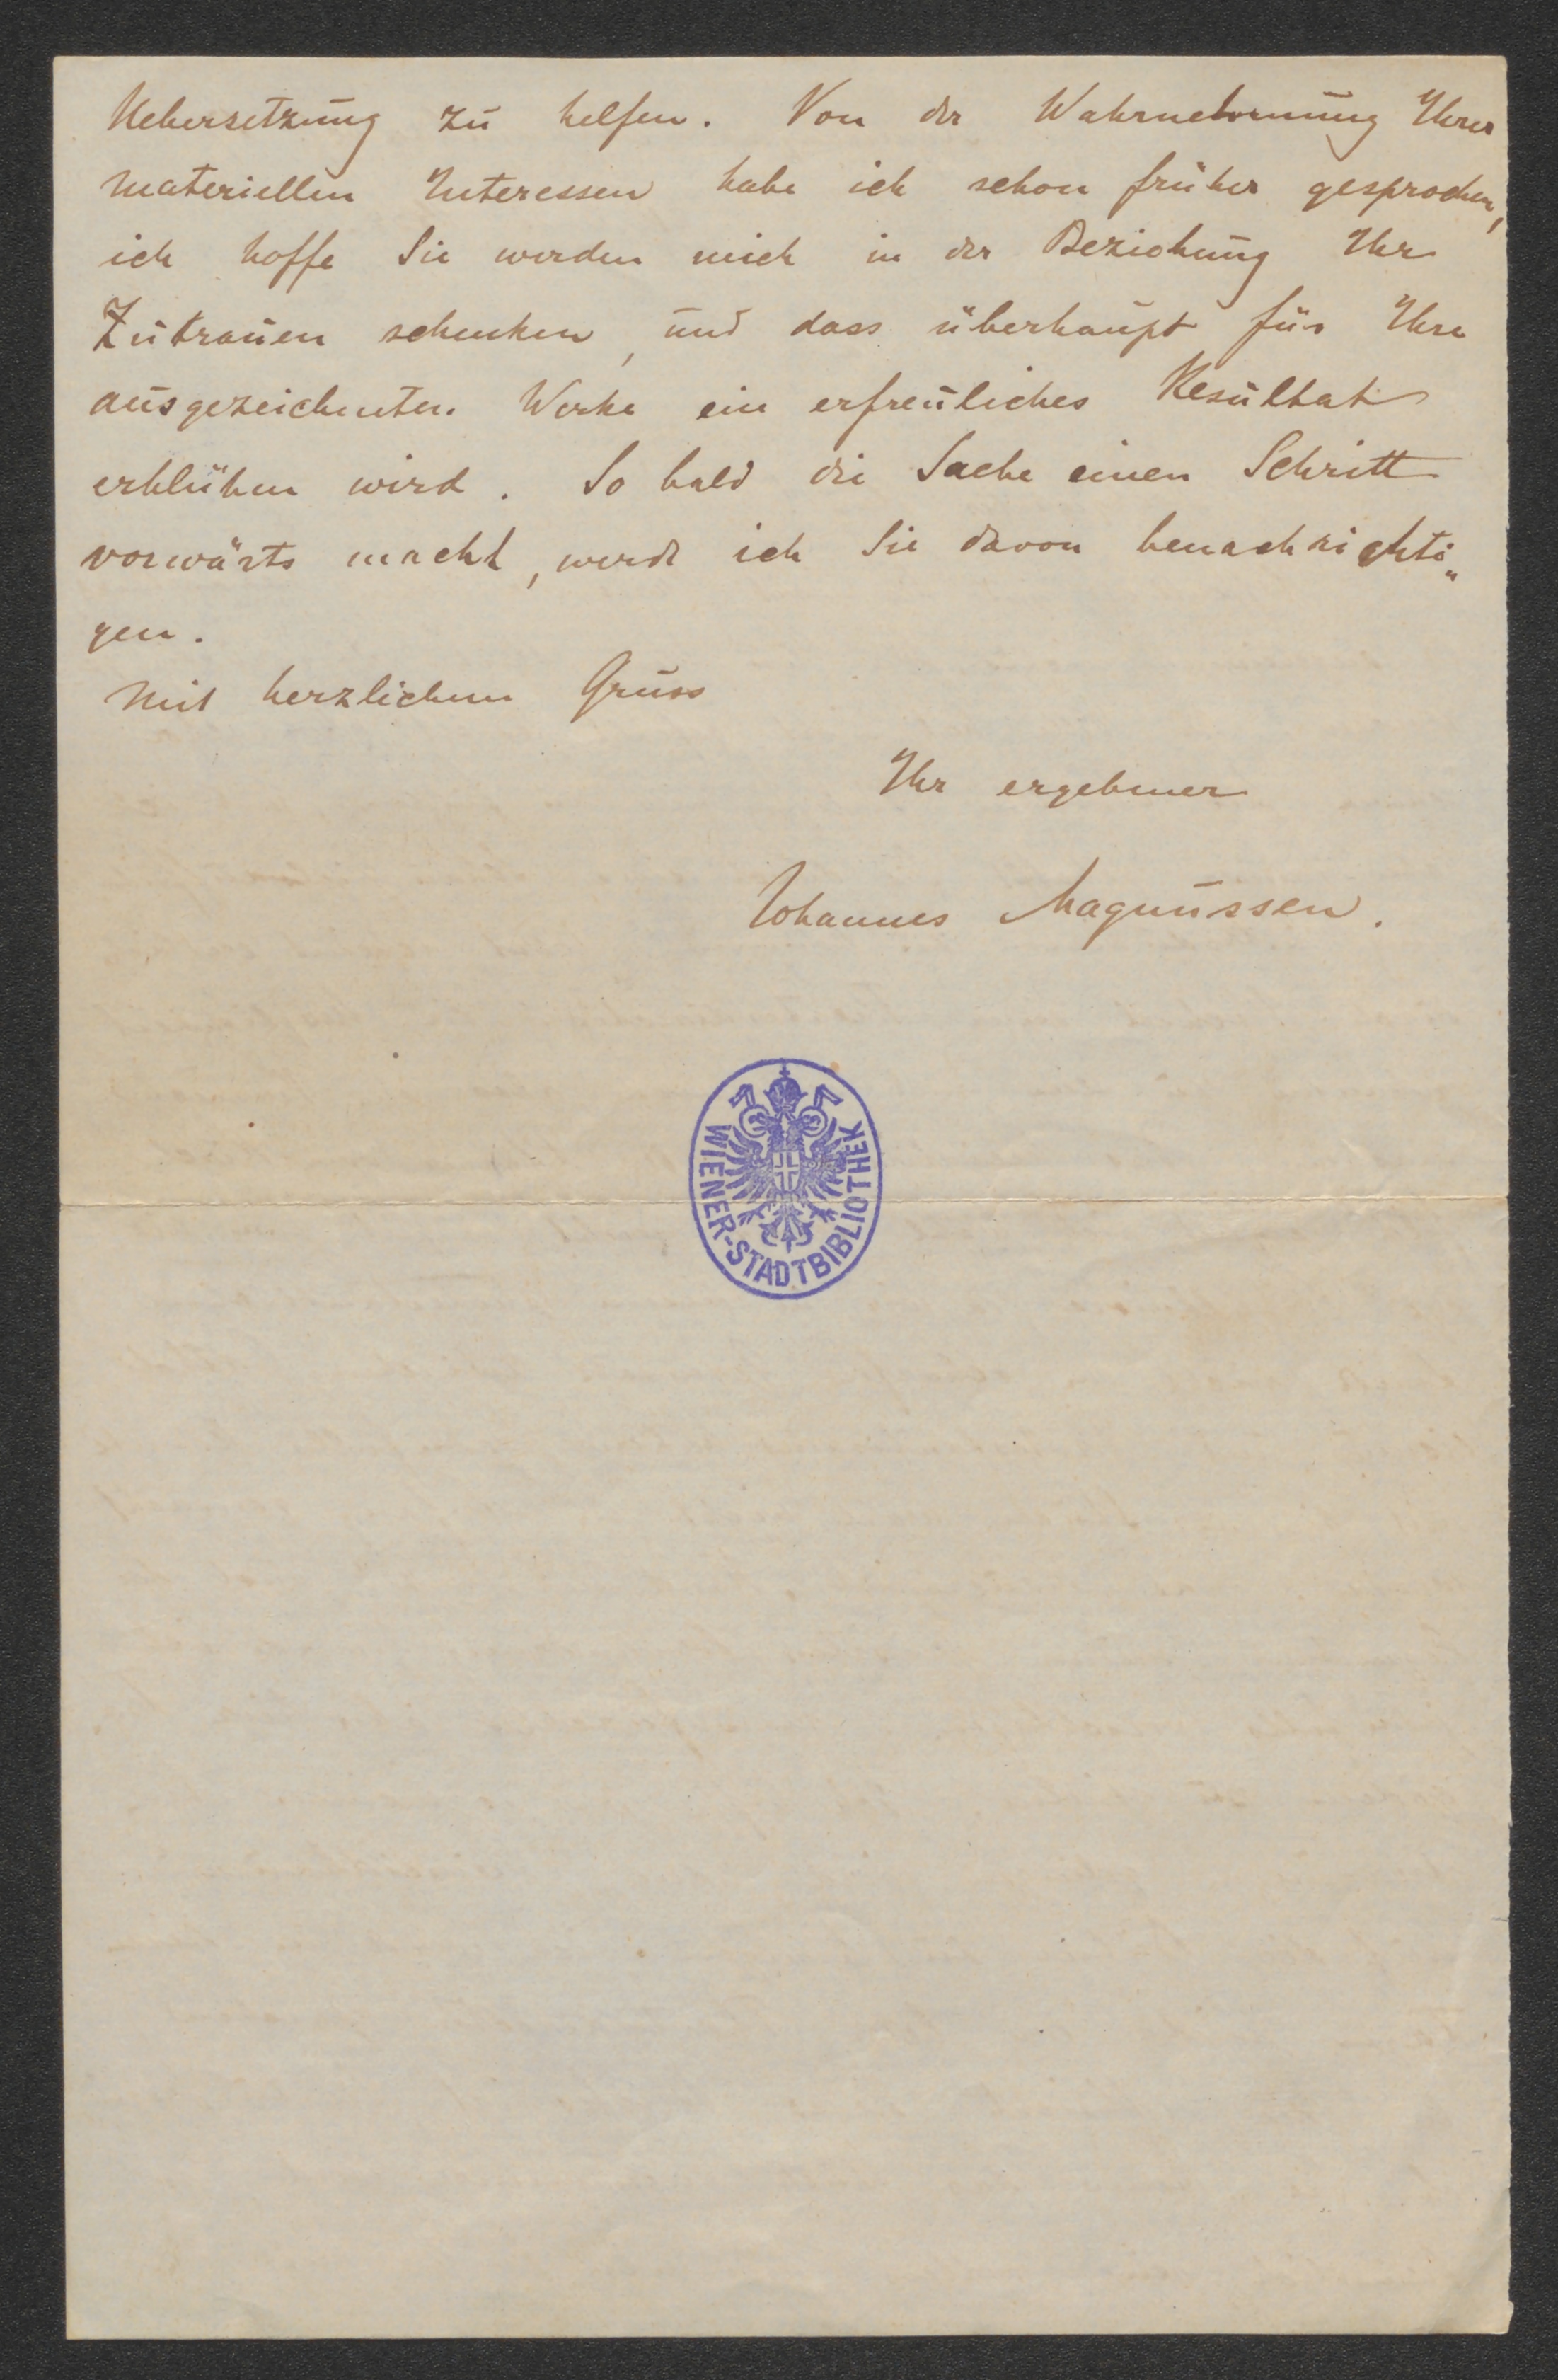 Uebersetzung zu helfen. Von der Wahrnehmung Ihrer
materiellen Interessen habe ich schon früher gesprochen,
ich hoffe Sie werden mich in der Beziehung Ihr
Zutrauen schenken, und dass überhaupt für Ihre
ausgezeichneten Werke ein erfreuliches Resultat
erblühen wird. So bald die Sache einen Schritt
vorwärts macht, werde ich Sie davon benachrichti„
gen.
Mit herzlichem Gruss
Ihr ergebener
Johannes Magnussen.
WIENER-STADTBIBLIOTHEK